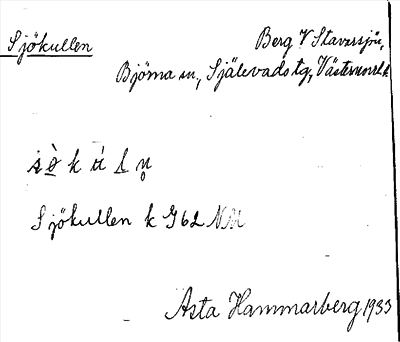 Sjökullen
Berg V Stavarsjön,
Bjärna sn, Själevads tg, Västernorrl. l.
Sjökullen k G62 NM
Asta Hammarberg 1933